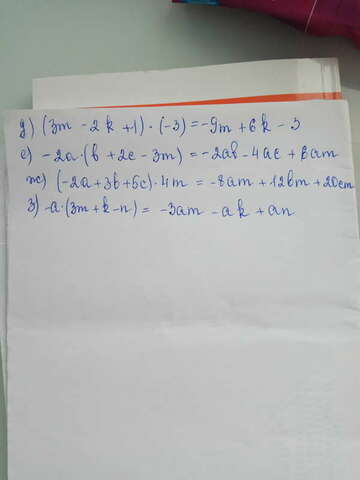 д) (3m - 2k + 1) · (-3) = -9m + 6k - 3
е) -2a · (b + 2c - 3m) = -2ab - 4ac + 6am
ж) (-2a + 3b + 5c) · 4m = -8am + 12bm + 20cm
з) -a · (3m + k - n) = -3am - ak + an